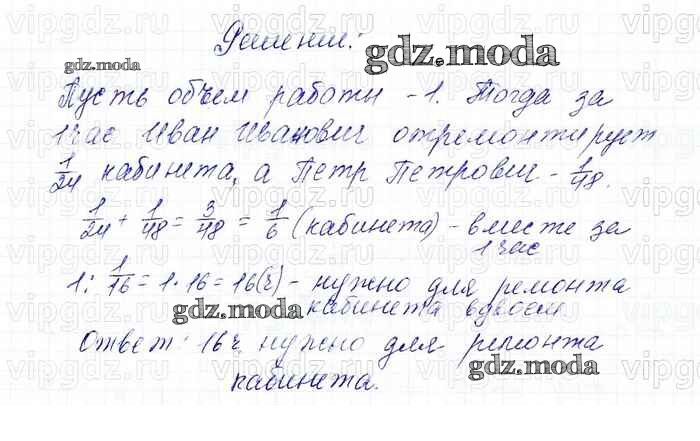 Решение:
gdz.moda
gdz.moda
Пусть объем работы - 1. Тогда за
1 час Иван Иванович отремонтирует
1/24 кабинета, а Петр Петрович - 1/48.
1/24 + 1/48 = 3/48 = 1/6 (кабинета) - вместе за
1 час
1 : 1/16 = 1 · 16 = 16 (ч) - нужно для ремонта
кабинета вдвоем
gdz.moda
Ответ: 16 ч нужно для ремонта
кабинета.
gdz.moda